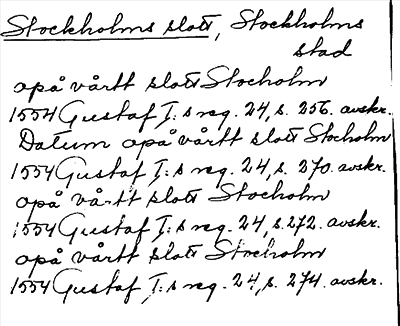 Stockholms slott, Stockholms
stad
opå vårtt slott Stocholm
1554 Gustaf I:s reg. 24, s. 256. avskr.
Datum opå vårtt slott Stocholm
1554 Gustaf I:s reg. 24, s. 270. avskr.
opå vårtt slott Stocholm
1554 Gustaf I:s reg. 24, s. 272. avskr.
opå vårtt slott Stocholm
1554 Gustaf I:s reg. 24, s. 274. avskr.